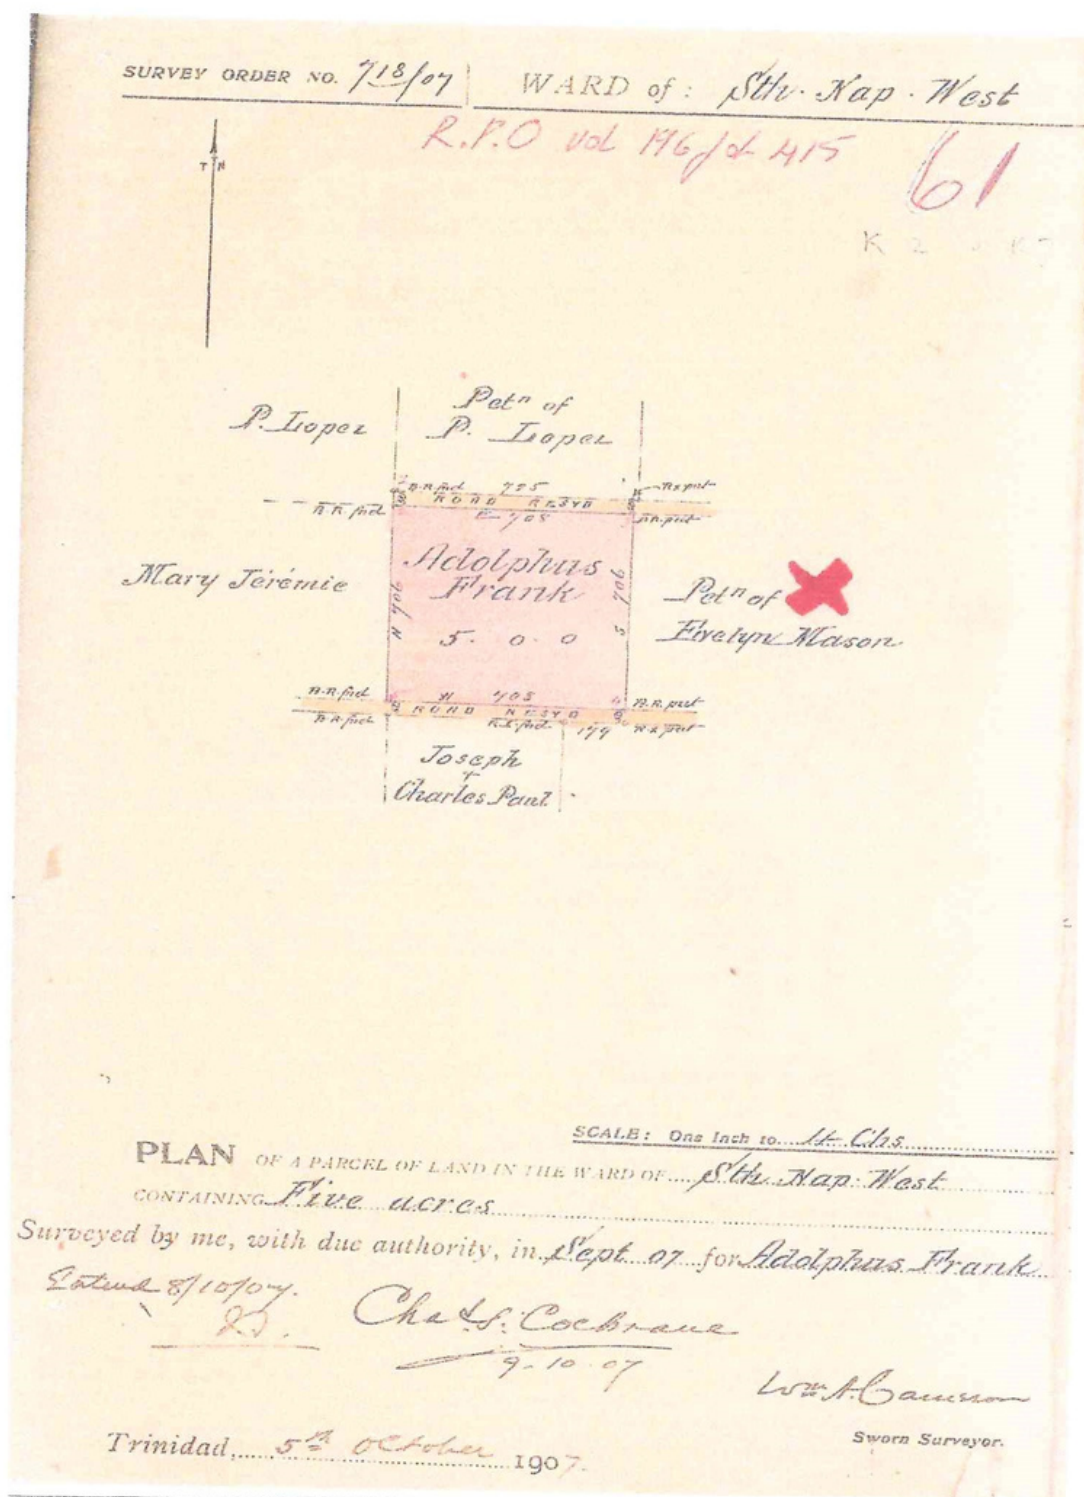 SURVEY ORDER NO. 718/07
WARD of: Sth. Nap. West
R.P.O vol 196 fol 415
61
K 2
T N
P. Lopez
Petn of
P. Lopez
B.R. fnd 725
ROAD RESVD
R.R. fnd
E 705
R.R. put
Mary Jérémie
Adolphus
Frank
N 706
S 706
5. 0. 0
Petn of
Evelyn Mason
B.R. fnd
W 705
B.R. put
ROAD RESVD
B.R. fnd
R.S. fnd
179
R.S. put
Joseph
+
Charles Paul
SCALE: One Inch to 4 Chs
PLAN OF A PARCEL OF LAND IN THE WARD OF Sth. Nap. West
CONTAINING Five acres
Surveyed by me, with due authority, in Sept 07 for Adolphus Frank
Entered 8/10/07.
Chas. S. Cochrane
9-10-07
Wm. A. Cameron
Sworn Surveyor.
Trinidad, 5th October 1907.